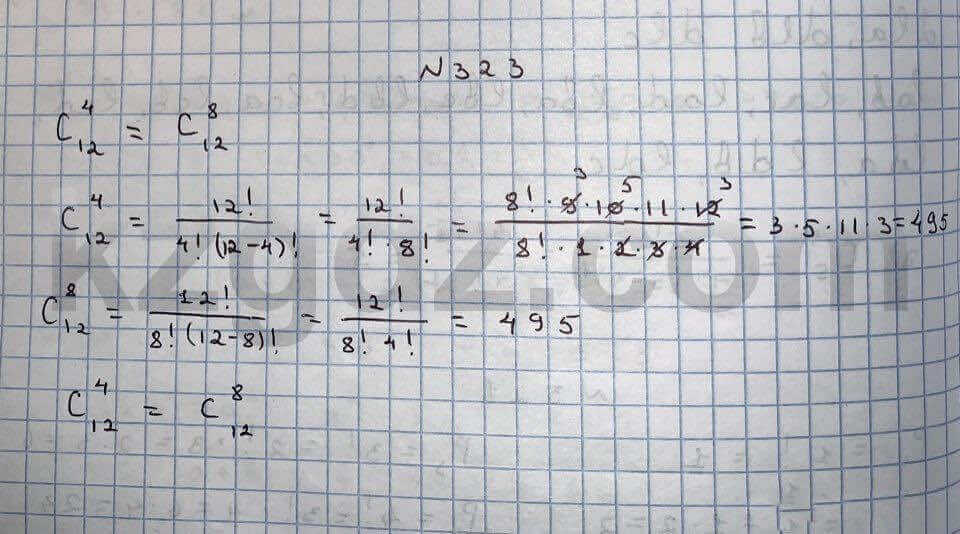 N 323
C₁₂⁴ = C₁₂⁸
C₁₂⁴ = 12! / 4! (12-4)! = 12! / 4! · 8! = 8! · 9 · 10 · 11 · 12 / 8! · 1 · 2 · 3 · 4 = 3 · 5 · 11 · 3 = 495
C₁₂⁸ = 12! / 8! (12-8)! = 12! / 8! 4! = 495
C₁₂⁴ = C₁₂⁸
kzgdz.com